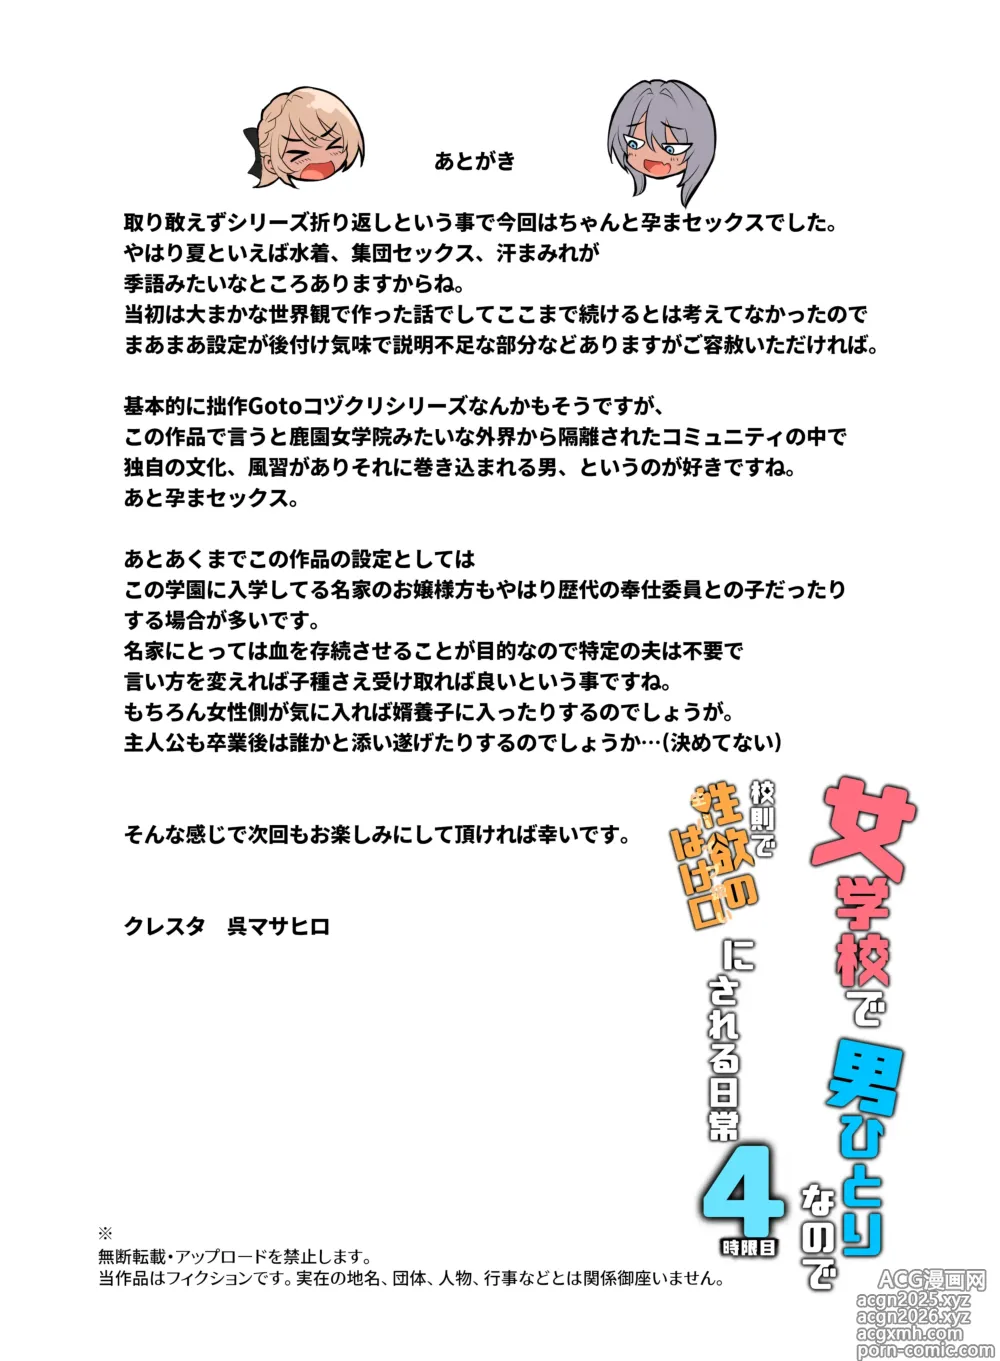 あとがき
取り敢えずシリーズ折り返しという事で今回はちゃんと孕まセックスでした。
やはり夏といえば水着、集団セックス、汗まみれが
季語みたいなところありますからね。
当初は大まかな世界観で作った話でしてここまで続けるとは考えてなかったので
まあまあ設定が後付け気味で説明不足な部分などありますがご容赦いただければ。
基本的に拙作Gotoコヅクリシリーズなんかもそうですが、
この作品で言うと鹿園女学院みたいな外界から隔離されたコミュニティの中で
独自の文化、風習がありそれに巻き込まれる男、というのが好きですね。
あと孕まセックス。
あとあくまでこの作品の設定としては
この学園に入学してる名家のお嬢様方もやはり歴代の奉仕委員との子だったり
する場合が多いです。
名家にとっては血を存続させることが目的なので特定の夫は不要で
言い方を変えれば子種さえ受け取れば良いという事ですね。
もちろん女性側が気に入れば婿養子に入ったりするのでしょうが。
主人公も卒業後は誰かと添い遂げたりするのでしょうか…(決めてない)
そんな感じで次回もお楽しみにして頂ければ幸いです。
クレスタ　呉マサヒロ
女学校で
男ひとり
なので
校則で
性欲の
はけ口
にされる日常
4
時限目
※
無断転載・アップロードを禁止します。
当作品はフィクションです。実在の地名、団体、人物、行事などとは関係御座いません。
ACG漫画网
acgn2025.xyz
acgn2026.xyz
acgxmh.com
porn-comic.com